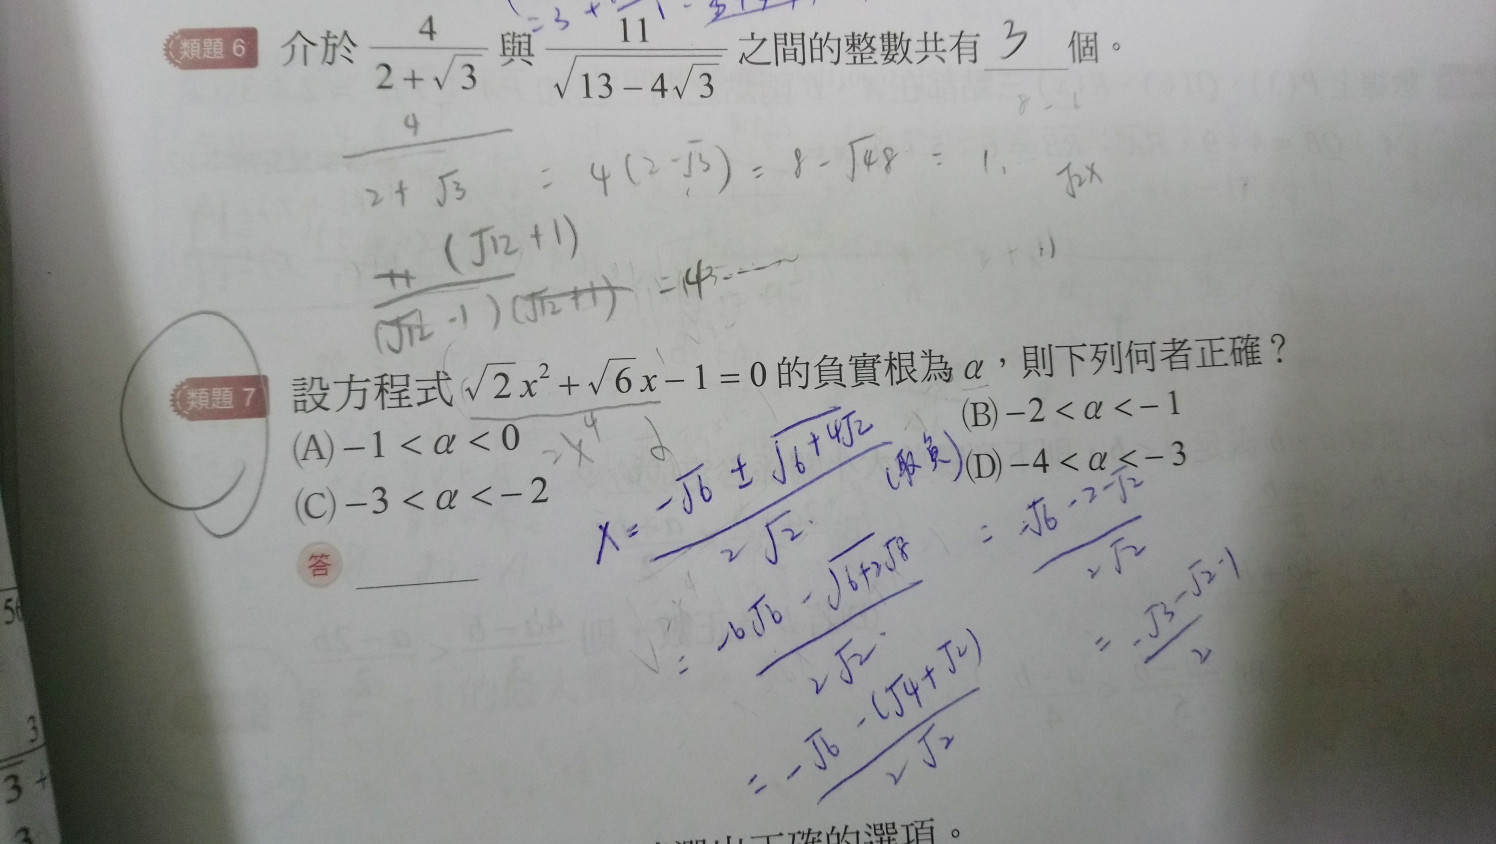 類題 6 介於 4/(2+√3) 與 11/√(13-4√3) 之間的整數共有 3 個。
4/(2+√3) = 4(2-√3) = 8-√48 = 1. √2x
11(√12+1)/(√12-1)(√12+1) = 4
類題 7 設方程式 √2x²+√6x-1=0 的負實根為 α，則下列何者正確？
(A) -1<α<0 (B) -2<α<-1
(C) -3<α<-2 (D) -4<α<-3
答
x = (-√6±√(6+4√2))/(2√2) (取負)
= (-6√6-√(6+2√8))/(2√2)
= (-√6-(√4+√2))/(2√2)
= (-√6-2-√2)/(2√2)
= (-√3-√2-1)/2
56
3
3+
3
選出正確的選項。